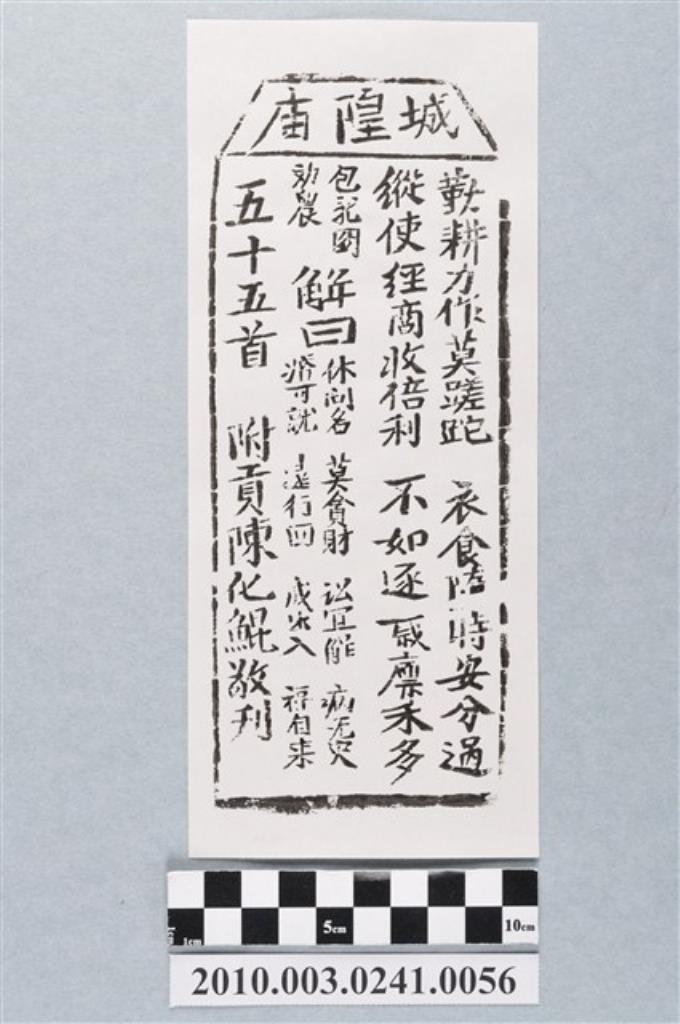 城隍庙
勤耕力作莫蹉跎 衣食隨時安分過
縱使經商收倍利 不如逐歲廩禾多
包龍圖
勸農
解曰
休問名 莫貪財 訟宜解 病无災
婚可就 遠行回 入 福自来
五十五首 附貢陳化鯤敬刊
5cm
10cm
1cm
2010.003.0241.0056